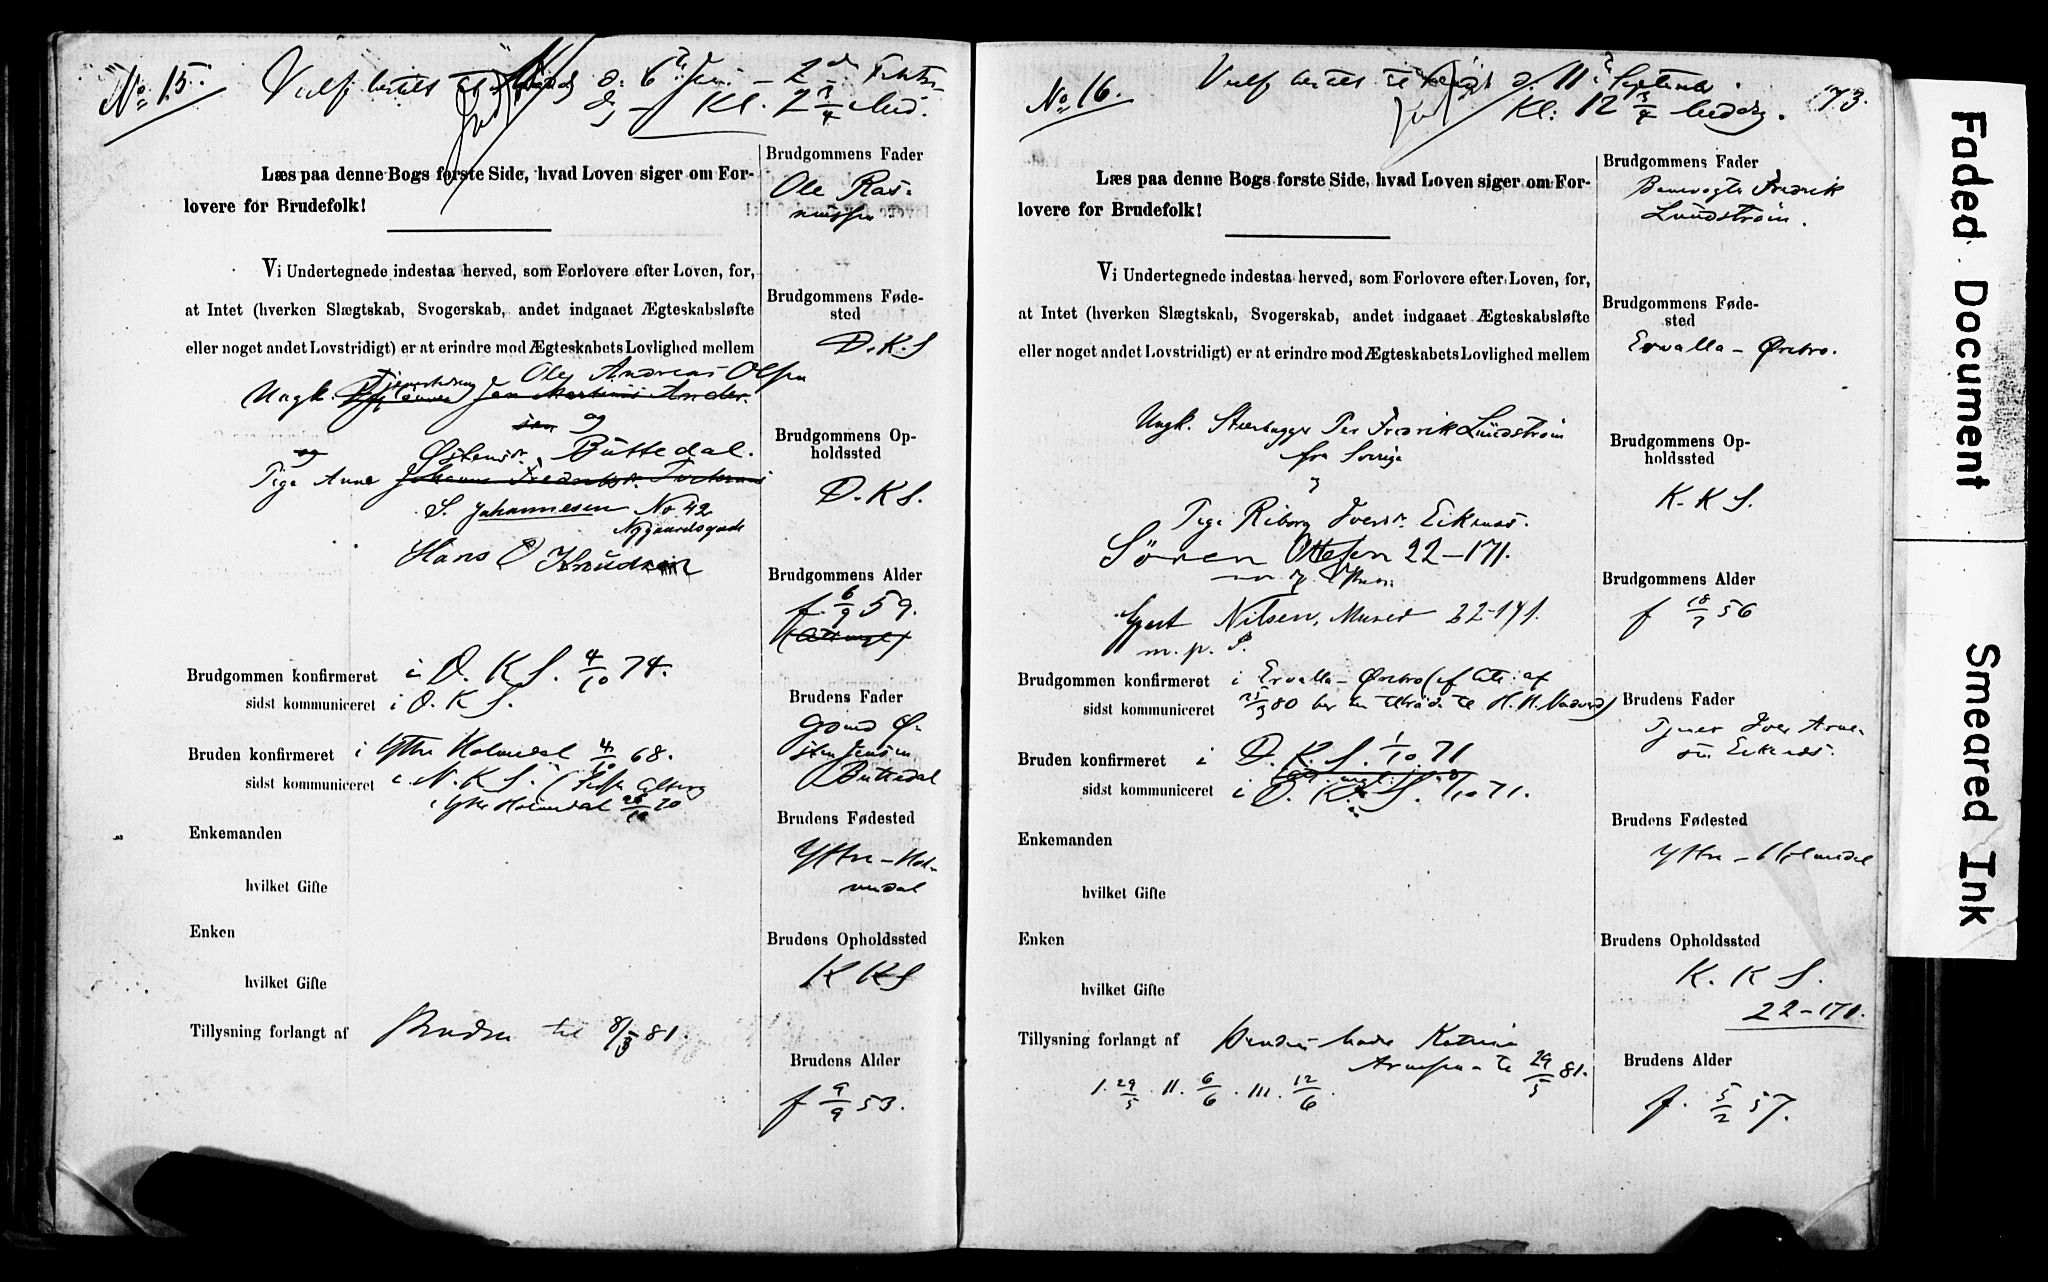 No. 15.
d. 6te Juni - 2den
Kl. 2 3/4
Læs paa denne Bogs første Side, hvad Loven siger om For-
lovere for Brudefolk!
Vi Undertegnede indestaa herved, som Forlovere efter Loven, for,
at Intet (hverken Slægtskab, Svogerskab, andet indgaaet Ægteskabsløfte
eller noget andet Lovstridigt) er at erindre mod Ægteskabets Lovlighed mellem
Ole Andreas Olsen
Ungk. Jan Martinus Ander-
sen og
og Østensdr. Buttedal.
Pige Anne Johanne
S. Johannesen No 42
Nygaardsgade
Hans O Knudsen
Brudgommen konfirmeret i D. K. S. 4/10 74.
sidst kommuniceret i D. K S.
Bruden konfirmeret i Yttre Holmedal 68.
sidst kommuniceret i N. K S.
i Yttre Holmedal 70
Enkemanden
hvilket Gifte
Enken
hvilket Gifte
Tillysning forlangt af Bruden til 8/5 81.
Brudgommens Fader
Ole Ras-
mussen
Brudgommens Føde-
sted
D. K. S
Brudgommens Op-
holdssted
D. K S.
Brudgommens Alder
f. 6/9 59.
Brudens Fader
Gaard Ø-
sten Jensen
Buttedal
Brudens Fødested
Yttre-Hol-
medal
Brudens Opholdssted
K K S
Brudens Alder
f 9/9 53.
No. 16.
d. 11te September
Kl: 12 3/4 Middag.
173.
Læs paa denne Bogs første Side, hvad Loven siger om For-
lovere for Brudefolk!
Vi Undertegnede indestaa herved, som Forlovere efter Loven, for,
at Intet (hverken Slægtskab, Svogerskab, andet indgaaet Ægteskabsløfte
eller noget andet Lovstridigt) er at erindre mod Ægteskabets Lovlighed mellem
Ungk. Stenhugger Per Fredrik Lundström
fra Sverige
og
Pige Riborg Iversdr. Eiknæs.
Sören Ottesen 22-171.
Nilsen, Mured 22-171.
m. p. P.
Brudgommen konfirmeret i Ervalla - Ørebro (
sidst kommuniceret 80
Bruden konfirmeret i D. K. S. 1/10 71
sidst kommuniceret i D. K. S. 8/10 71.
Enkemanden
hvilket Gifte
Enken
hvilket Gifte
Tillysning forlangt af Brudens Moder Katrine
Arnesen - til 29/5 81.
I. 29/5. II. 6/6. III. 12/6.
Brudgommens Fader
Banevogter Fredrik
Lundström.
Brudgommens Føde-
sted
Ervalla - Ørebro.
Brudgommens Op-
holdssted
K. K S.
Brudgommens Alder
f 18/7 56
Brudens Fader
Iver Arne-
sen Eiknæs.
Brudens Fødested
Yttre - Holmedal
Brudens Opholdssted
K. K S.
22-171.
Brudens Alder
f. 5/2 57.
Faded Document
Smeared Ink